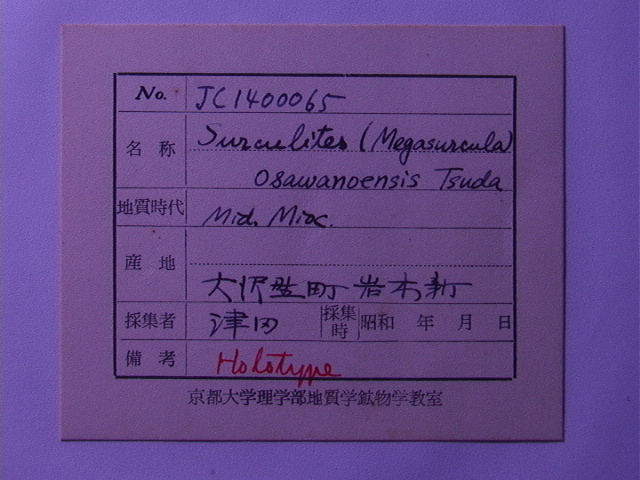 No. JC1400065
名称 Surculites (Megasurcula)
osawanoensis Tsuda
地質時代 Mid. Mioc.
産地
大沢野町 岩木新
採集者 津田 採集時 昭和 年 月 日
備考 Holotype
京都大学理学部地質学鉱物学教室